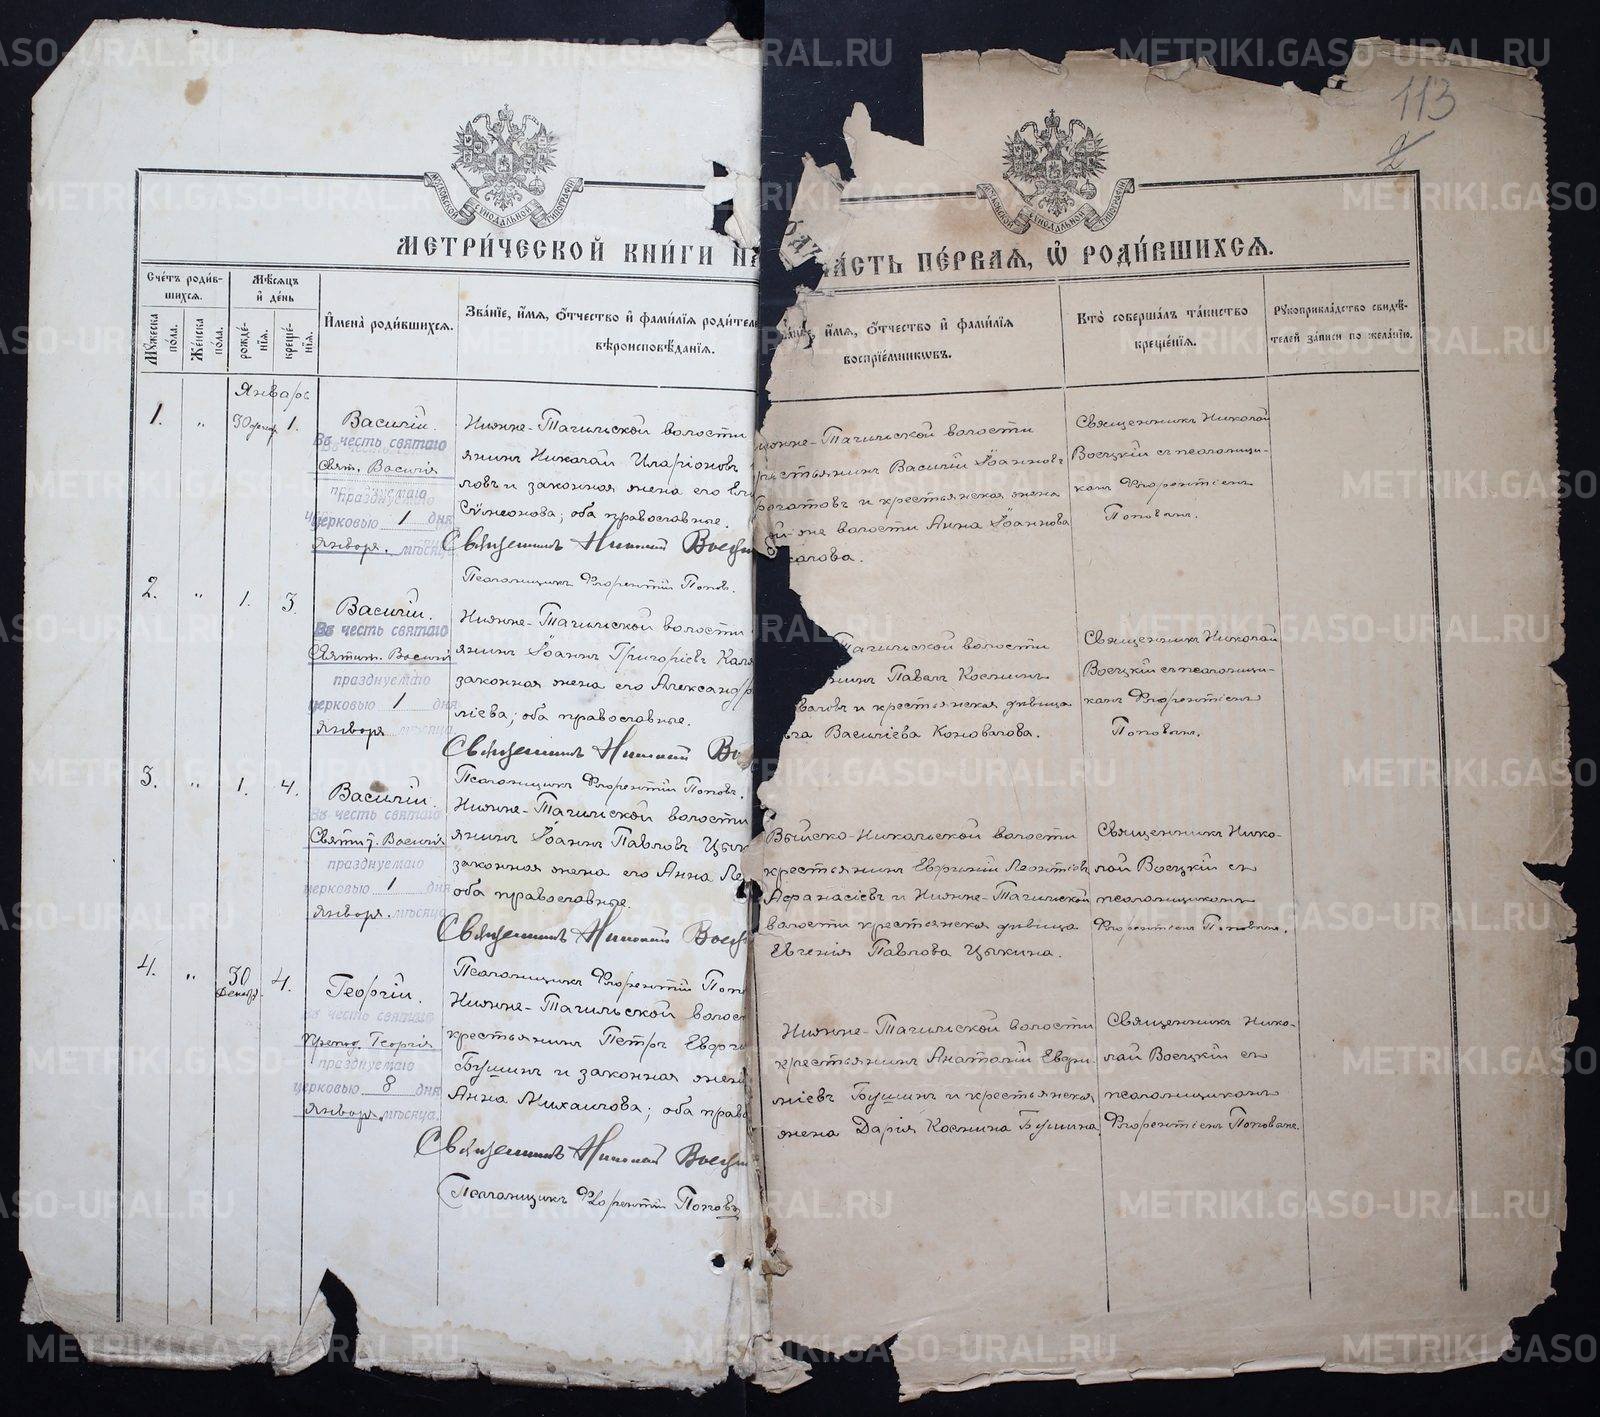 113
2
МОСКОВСКОЙ СУНОДАЛЬНОЙ ТИПОГРАФІИ
МОСКОВСКОЙ СУНОДАЛЬНОЙ ТИПОГРАФІИ
МЕТРИ́ЧЕСКОЙ КНИ́ГИ НА
ЧА́СТЬ ПЕ́РВАЯ, Ѡ҆ РОДИ́ВШИХСЯ.
Сче́тъ роди́в-
шихся.
Мѣ́сяцъ
и҆ де́нь
Мꙋ́жеска по́ла.
Же́нска по́ла.
рожде́-
нїя.
креще́-
нїя.
И҆мена̀ роди́вшихся.
Зва́нїе, и҆́мя, ѻ҆́тчество и҆ фами́лїя роди́тел
вѣроисповѣ́данїя.
и҆́мя, ѻ҆́тчество и҆ фами́лїя
воспрїе́мниковъ.
Кто̀ соверша́лъ та́инство
креще́нїя.
Рꙋкоприкла́дство свидѣ́-
телей за́писи по жела́нїю.
Январь
1.
"
30 декабр.
1.
Василій.
Въ честь святаго
Свят. Василія
празднуемаго
церковью 1 дня
Января. мѣсяца
Нижне-Тагильской волости
янинъ Николай Иларіоновъ
ловъ и законная жена его
Сумеонова; оба православные.
Священникъ Николай Воецк
Псаломщикъ Флорентій Попов.
Нижне-Тагильской волости
крестьянинъ Василій Іоаннов
Богатовъ и крестьянская жена
той-же волости Анна Іоаннова
Священникъ Николай
Воецкій съ псаломщи-
комъ Флорентіемъ
Поповымъ.
2.
"
1.
3.
Василій.
Въ честь святаго
Святит. Василія
празднуемаго
церковью 1 дня
Января мѣсяца
Нижне-Тагильской волости
янинъ Іоаннъ Григоріевъ
законная жена его Александр
ліева; оба православные.
Священникъ Николай Во
Псаломщикъ Флорентій Поповъ.
Тагильской волости
нинъ Павелъ Косминъ
валовъ и крестьянская дѣвица
Василіева Коновалова.
Священникъ Николай
Воецкій съ псаломщи-
комъ Флорентіемъ
Поповымъ.
3.
"
1.
4.
Василій.
Въ честь святаго
Святит. Василія
празднуемаго
церковью 1 дня
Января. мѣсяца
Нижне-Тагильской волости
янинъ Іоаннъ Павловъ Цык
законная жена его Анна Ле
оба православные.
Священникъ Николай Воецк
Псаломщикъ Флорентій Поп
Выйско-Никольской волости
крестьянинъ Евгеній Леонтіевъ
Афанасіевъ и Нижне-Тагильской
волости крестьянская дѣвица
Евгенія Павлова Цыкина.
Священникъ Нико-
лай Воецкій съ
псаломщикомъ
Флорентіемъ Поповымъ.
4.
"
30
Декабр.
4.
Георгій.
Въ честь святаго
Препод. Георгія
празднуемаго
церковью 8 дня
Января. мѣсяца.
Нижне-Тагильской волост
крестьянинъ Петръ
Бушинъ и законная жена
Анна Михаилова; оба право
Священникъ Николай Воецк
Псаломщикъ Флорентій Поповъ
Нижне-Тагильской волости
крестьянинъ Анатолій Евфи
міевъ Бушинъ и крестьянская
жена Дарія Космина Бушина.
Священникъ Нико-
лай Воецкій съ
псаломщикомъ
Флорентіемъ Поповымъ.
METRIKI.GASO-URAL.RU